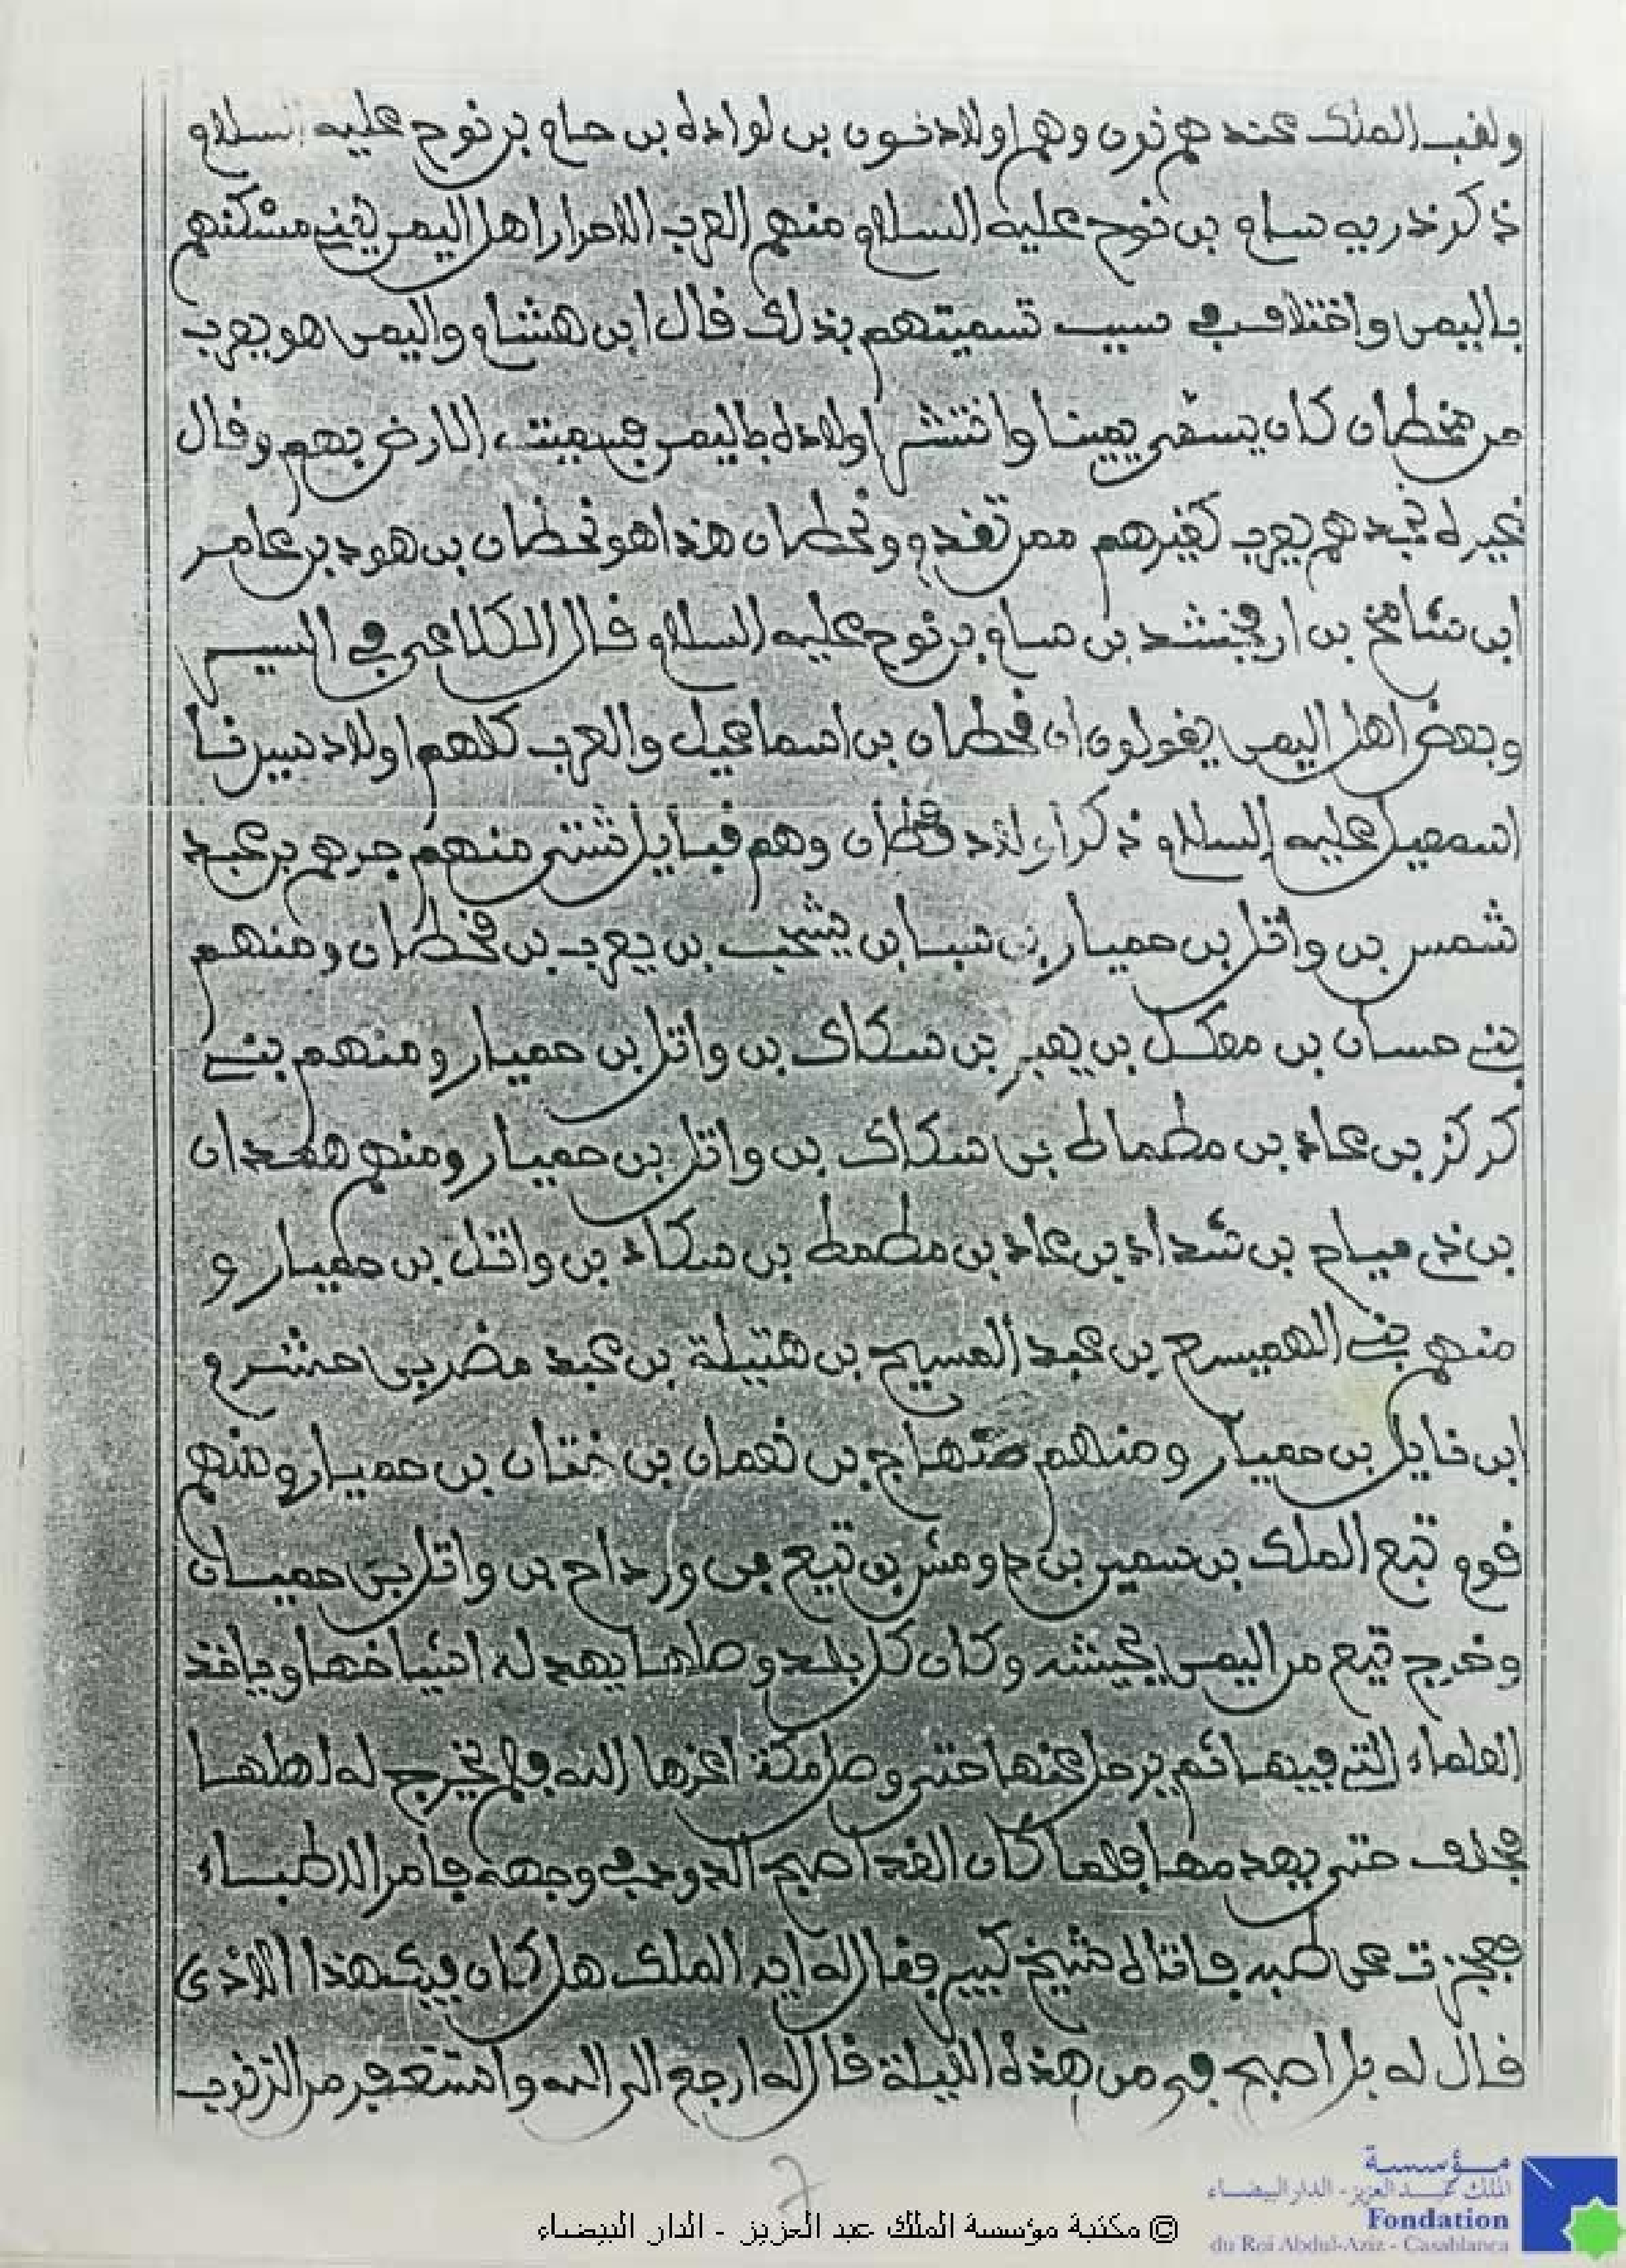 ولقب الملك عندهم نون وهم اولاد نون بن لواده بن حام بن نوح عليه السلام
ذكر ذريه سام بن نوح عليه السلام منهم العرب الاحرار اهل اليمن يعني مسكنهم
باليمن واختلاف في سبب تسميتهم بذلك قال ابن هشام واليمن هو يعرب
من قحطان كان يسمى يمينا وانتشر اولاده باليمن فسميت الارض بهم وقال
غيره نجدهم يعرب كغيرهم ممن تقدم وقحطان هذا هو قحطان بن هود بن عامر
ابن شامخ بن ارفخشد بن سام بن نوح عليه السلام قال الكلاعي في السير
وبعض اهل اليمن يقولون ان قحطان بن اسماعيل والعرب كلهم اولاد سيرنا
اسمعيل عليه السلام ذكر اولاد قحطان وهم قبايل شتى منهم جرهم بن عبد
شمس بن واتل بن حميار بن سبا بن يشجب بن يعرب بن قحطان ومنهم
بني حسان بن معكل بن يعبر بن سكاك بن واتل بن حميار ومنهم بني
كركز بن عاد بن مطماط بن سكاك بن واتل بن حميار ومنهم همدان
بن ذي مياح بن شداد بن عاد بن مطمط بن سكاد بن واتل بن حميار و
منهم بني الهميسح بن عبد المسيح بن هتيلة بن عبد مضر بن حشرم
ابن نايل بن حميار ومنهم صنهاج بن نعمان بن ختان بن حميار ومنهم
قوم تبع الملك بن سمير بن دومش بن تبع بن ورداح بن واتل بن حميان
وخرج تبع من اليمن بجيشه وكان كل بلد وطلها يهد له اشياخها وياخذ
العلماء التي فيها ثم يرحل عنها حتى وصل مكة اعزها الله فلم يخرج له اهلها
فحلف حتى يهدمها فلما كان الغد اصبح الدود في وجهه فامر الاطباء
فعجزت عن طبه فاتاله شيخ كبير فقال له ايه الملك هل كان فيك هذا الذى
قال له بل اصبح في من هذه الليلة قال له ارجع الى الله واستغفر من الذنوب
7
© مكتبة مؤسسة الملك عبد العزيز - الدار البيضاء
مؤسسة
الملك عبد العزيز - الدار البيضاء
Fondation
du Roi Abdul-Aziz - Casablanca